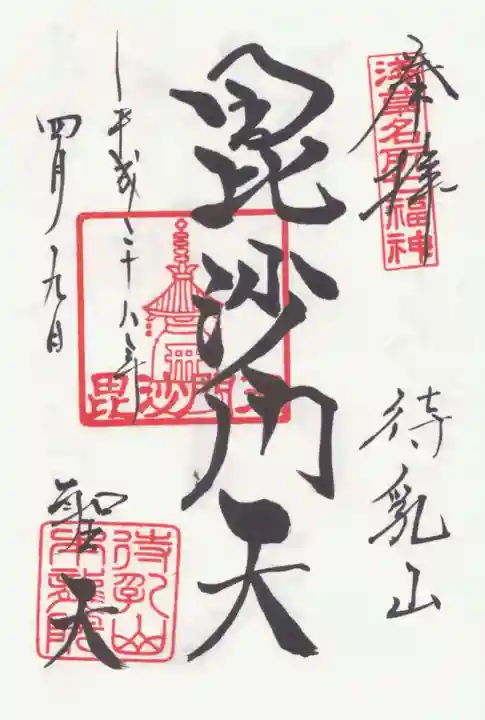 奉拝
浅草名所七福神
待乳山
毘沙門天
毘沙門天
平成二十八年
四月九日
聖天
待乳山
本龍院